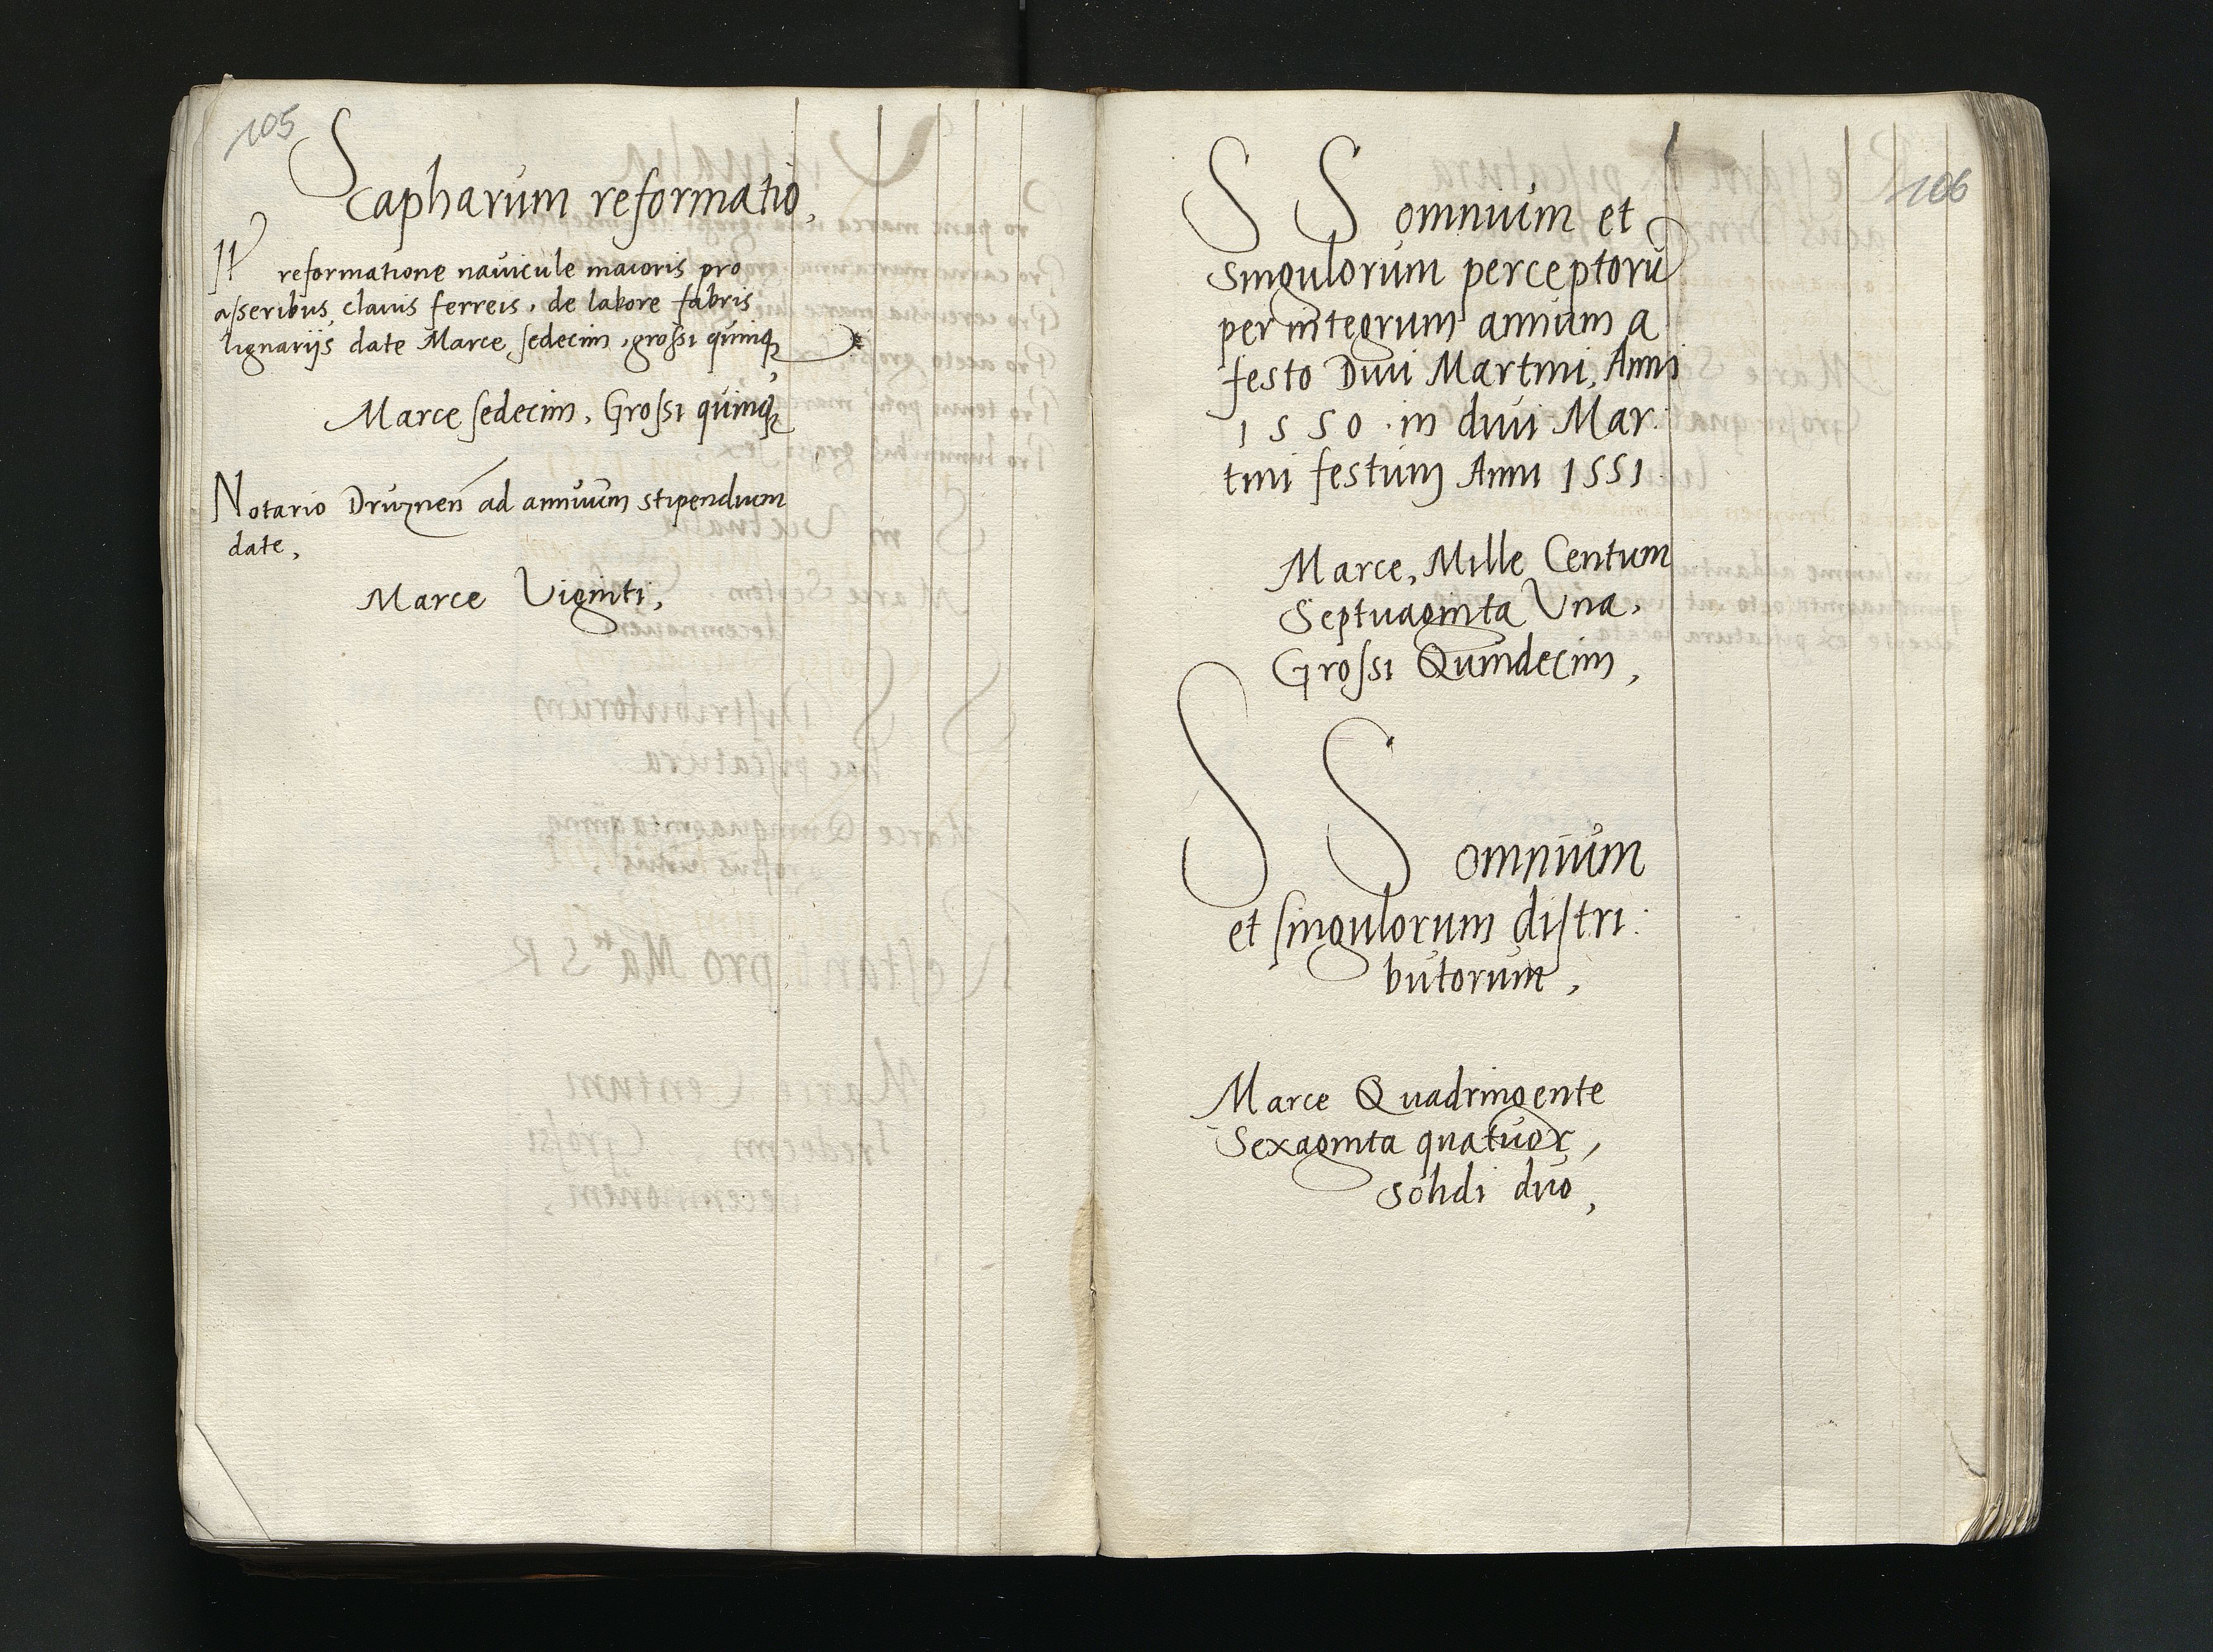 105
Scapharum reformatio,
It reformatione navicule maioris pro
asseribus, clavis ferreis, de labore fabris
lignarijs date Marce sedecim, grossi quinq
Marce sedecim, Grossi quinq
Notario Druznen ad annuum stipendium
date,
Marce Viginti,
106
S S omnium et
singulorum perceptorū
per integrum annum a
festo Divi Martini, Anni
1550 in divi Mar:
tini festum Anni 1551.
Marce, Mille Centum
Septuaginta Una,
Grossi Quindecim,
S S omnium
et singulorum distri:
butorum,
Marce Quadringente
Sexaginta quatuor,
solidi duo,